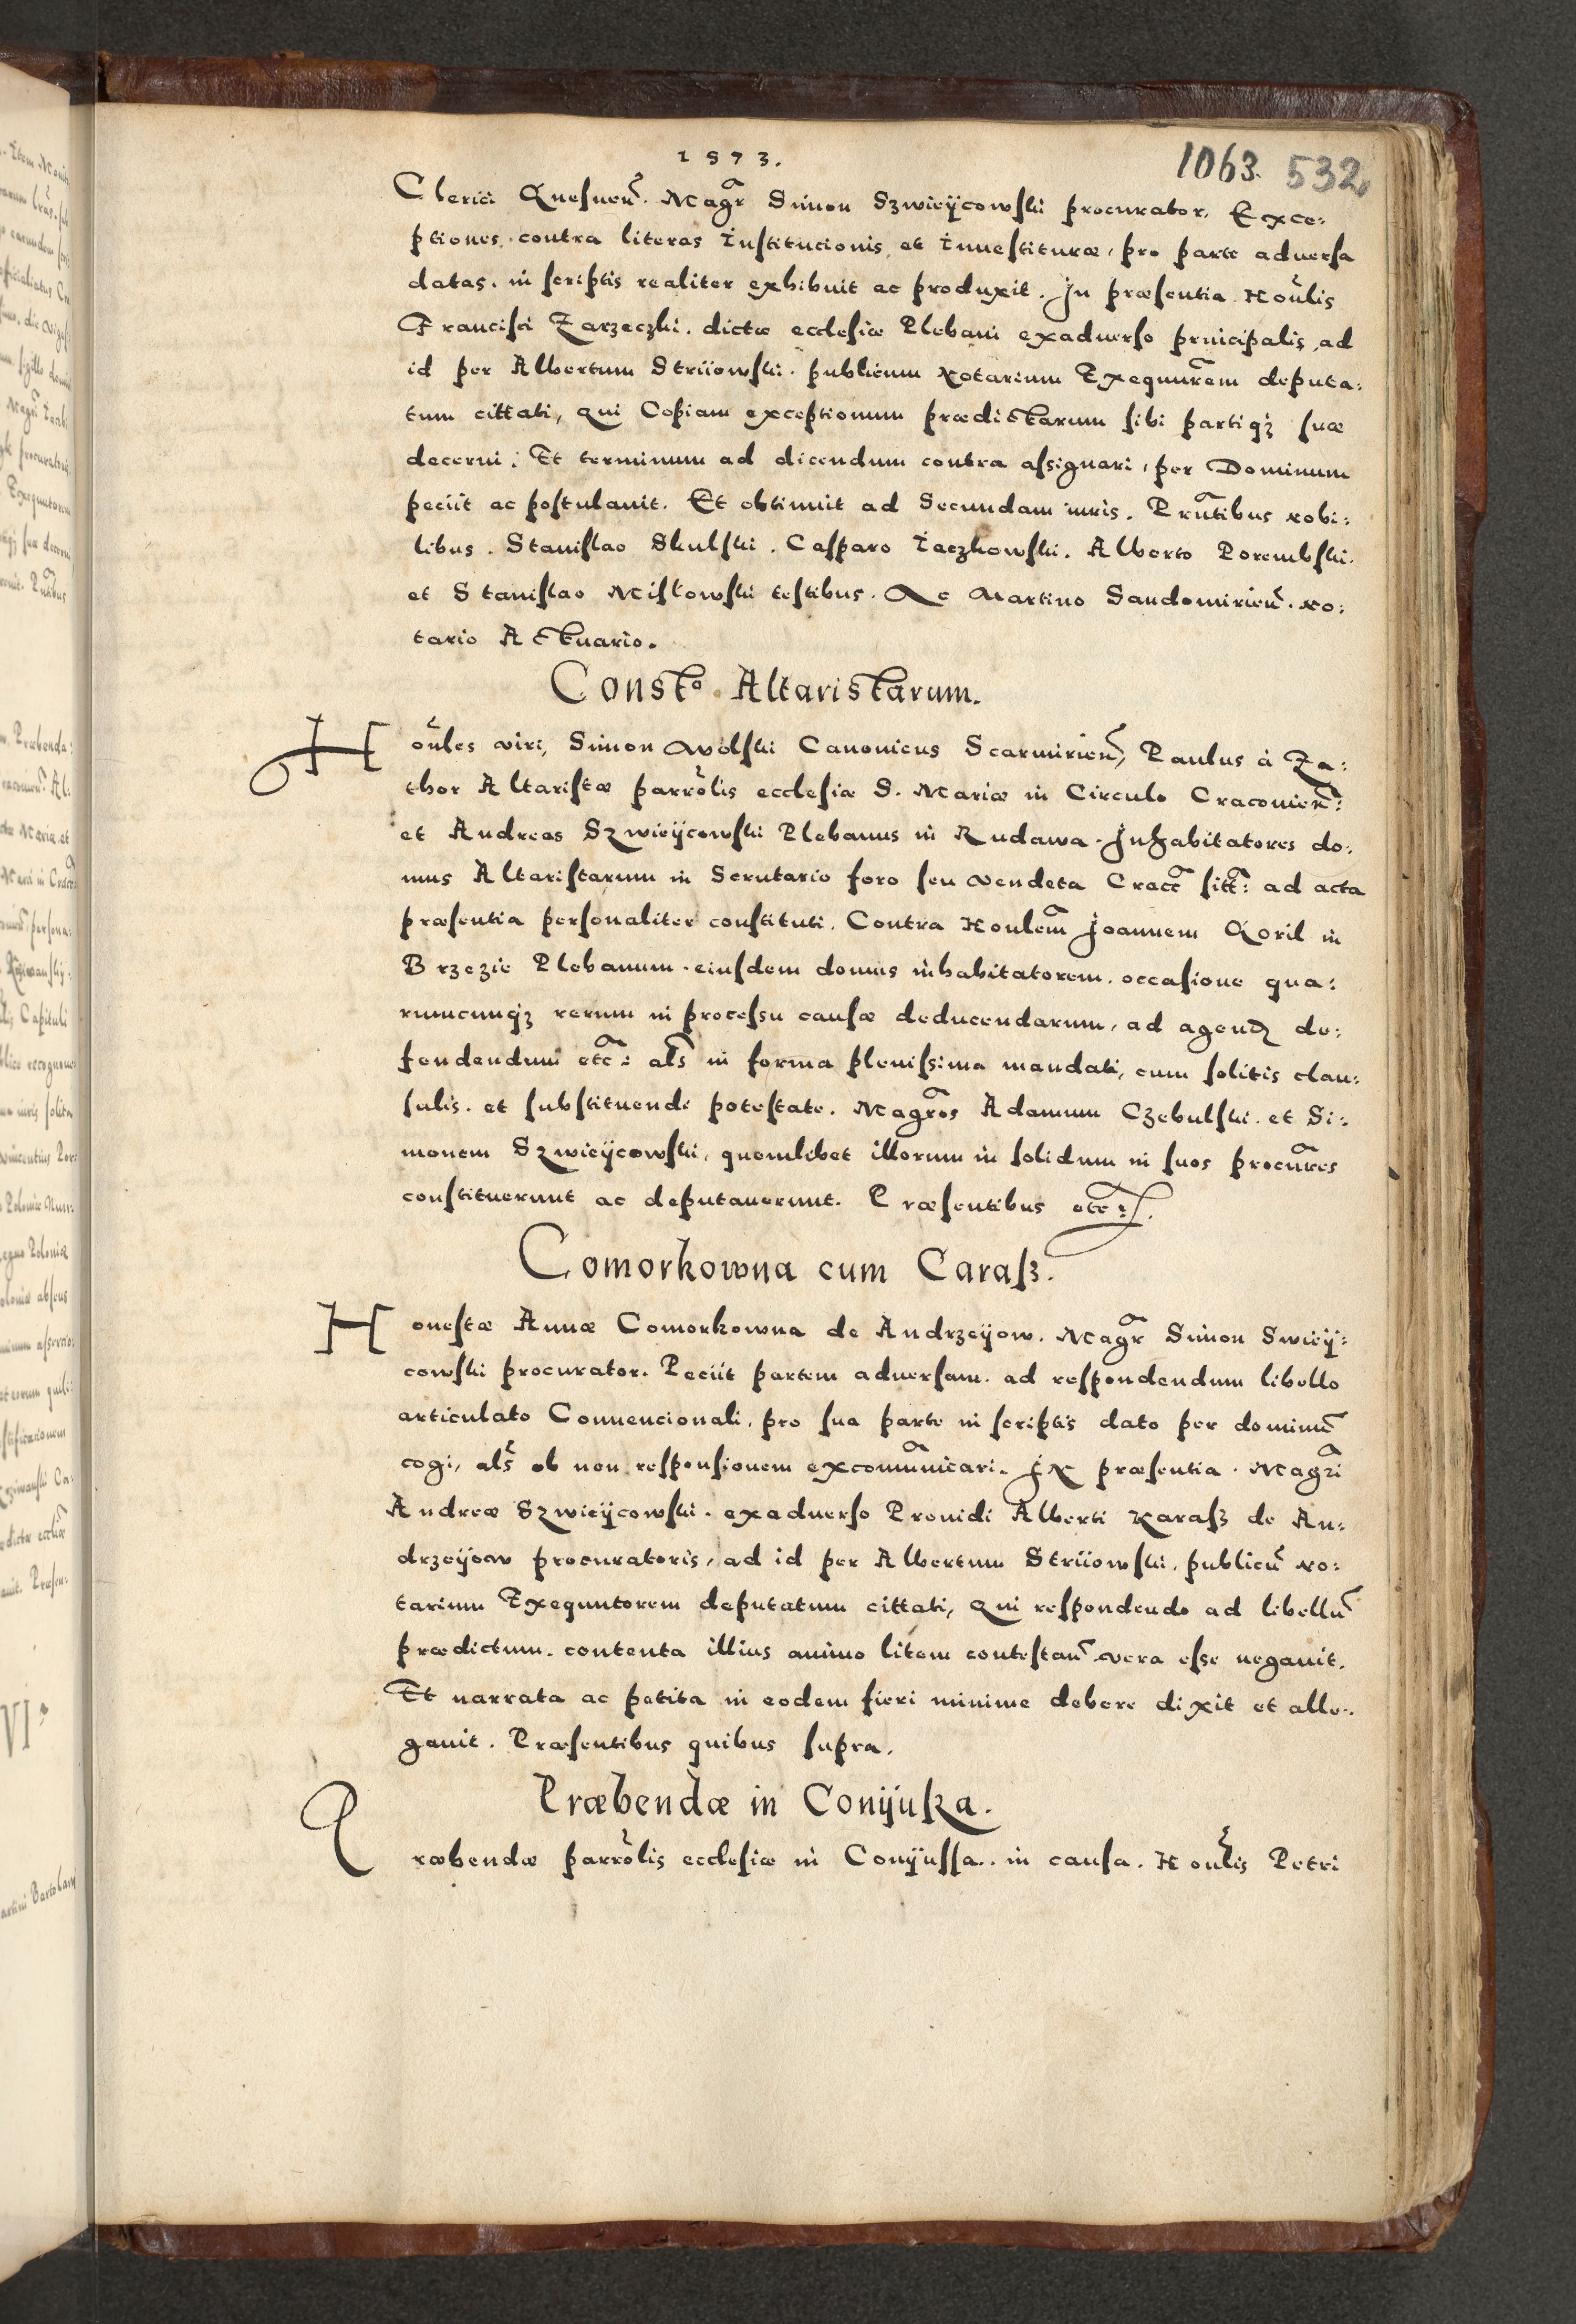 1573.
1063. 532
Clerici Gnesnen̄. Magr̄ Simon Szwieÿcowski procurator. Exce:
ptiones contra literas Institucionis et Inuestituræ, pro parte aduersa
datas. in scriptis realiter exhibuit ac produxit. In præsentia Honl̄is
Francisci Zarzeczki. dictæ ecclesiæ Plebani exaduerso principalis, ad
id per Albertum Striiowski. publicum Notarium Exequut̄rem deputa:
tum cittati, qui Copiam exceptionum prædictarum sibi partiqȝ suæ
decerni; Et terminum ad dicendum contra assignari, per Dominum
peciit ac postulauit. Et obtinuit ad Secundam iuris. Prn̄tibus Nobi:
libus. Stanislao Skulski. Casparo Iaczkowski. Alberto Porembski.
et Stanislao Mislowski testibus. Ac Martino Sandomirien̄. No:
tario Actuario.
Constᵒ. Altaristarum.
Honl̄es viri, Simon Wolski Canonicus Scarmirien̄, Paulus à Za:
thor Altaristæ parrōlis ecclesiæ S. Mariæ in Circulo Cracouien̄:
et Andreas Szwieÿcowski Plebanus in Rudawa. Inhabitatores do:
mus Altaristarum in Scrutario foro seu vendeta Cracc̄ sitt̄: ad acta
præsentia personaliter constituti. Contra Honlem̄ Joannem Goril in
Brzezie Plebanum. eiusdem domus inhabitatorem. occasione qua:
rumcunqȝ rerum in processu causæ deducendarum, ad agend de:
fendendum etc̄: als̄ in forma plenissima mandati, cum solitis clau:
sulis. et substituendi potestate. Magr̄os Adamum Czebulski. et Si:
monem Szwieÿcowski, quemlibet illorum in solidum in suos procur̄es
constituerunt ac deputauerunt. Præsentibus etc:
Comorkowna cum Caraß.
Honestæ Annæ Comorkowna de Andrzeÿow. Magr̄ Simon Swieÿ:
cowski procurator. Peciit partem aduersam. ad respondendum libello
articulato Conuencionali. pro sua parte in scriptis dato per dominū
cogi, als̄ ob non responsionem excomūnicari. IN præsentia. Magr̄i
Andreæ Szwieÿcowski. exaduerso Prouidi Alberti Karaß de An:
drzeÿow procuratoris, ad id per Albertum Striiowski, publicū No:
tarium Exequutorem deputatum cittati, Qui respondendo ad libellū
prædictum. contenta illius animo litem contestan̄ vera esse negauit.
Et narrata ac petita in eodem fieri minime debere dixit et alle:
gauit. Præsentibus quibus supra.
Præbendæ in Conÿußa.
Præbendæ parrōlis ecclesiæ in Conÿussa.. in causa. Honl̄is Petri